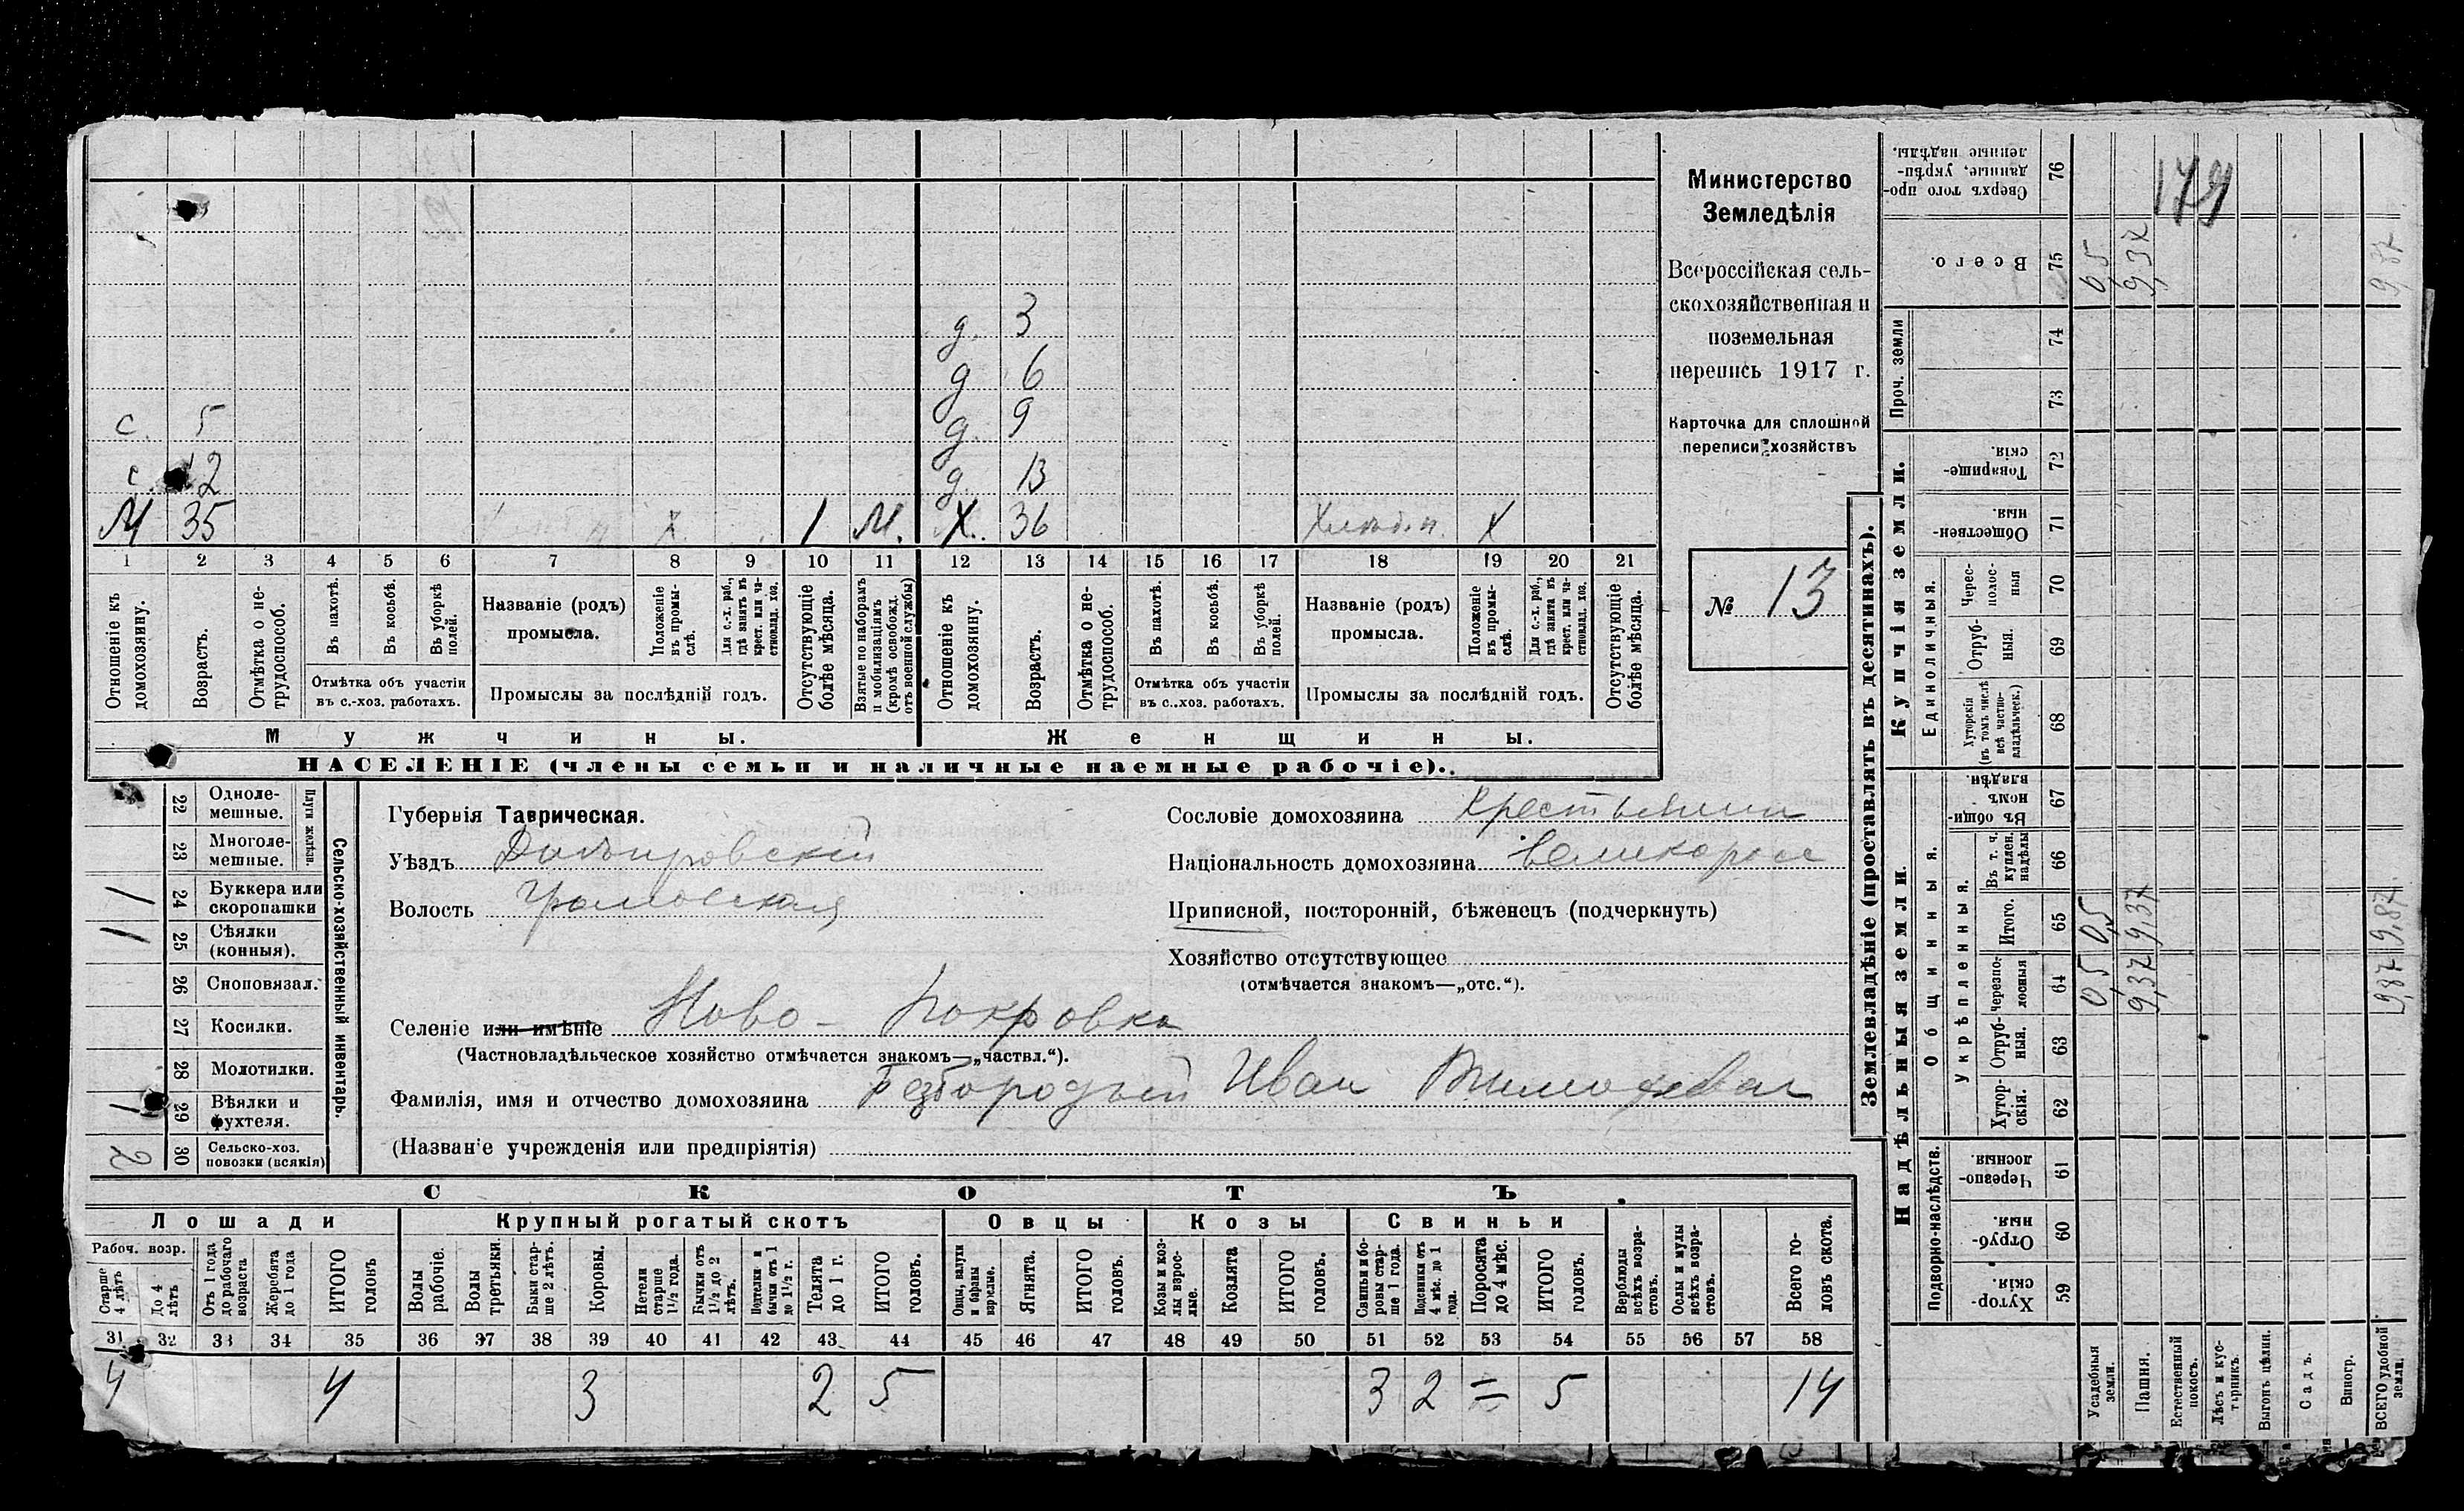 с. 5
с. 12
М 35 х 1 М.
д. 3
д 6
д. 9
д. 13
Х. 36 Х
1 2 3 4 5 6 7 8 9 10 11 12 13 14 15 16 17 18 19 20 21
Отношеніе къ домохозяину.
Возрастъ.
Отмѣтка о нетрудоспособ.
Въ пахотѣ.
Въ косьбѣ.
Въ уборкѣ полей.
Отмѣтка объ участіи
въ с.-хоз. работахъ.
Названіе (родъ)
промысла.
Положеніе въ промыслѣ.
Для с.-х. раб., гдѣ занятъ въ крест. или частновлад. хоз.
Промыслы за послѣдній годъ.
Отсутствующіе болѣе мѣсяца.
Взятые по наборамъ и мобилизаціямъ (кромѣ освобожд. отъ военной службы)
Отношеніе къ домохозяину.
Возрастъ.
Отмѣтка о нетрудоспособ.
Въ пахотѣ.
Въ косьбѣ.
Въ уборкѣ полей.
Отмѣтка объ участіи
въ с..хоз. работахъ.
Названіе (родъ)
промысла.
Положеніе въ промыслѣ.
Для с.-х. раб., гдѣ занята въ крест. или частновлад. хоз.
Промыслы за послѣдній годъ.
Отсутствующіе болѣе мѣсяца.
Мужчины. Женщины.
НАСЕЛЕНІЕ (члены семьи и наличные наемные рабочіе).
Министерство
Земледѣлія
Всероссійская сель-
скохозяйственная и
поземельная
перепись 1917 г.
Карточка для сплошной
переписи хозяйствъ
№ 13
Сельско-хозяйственный инвентарь.
Плуги желѣзн.
22 Одноле-
мешные.
23 Многоле-
мешные.
1 24 Буккера или
скоропашки
1 25 Сѣялки
(конныя).
26 Сноповязал.
27 Косилки.
28 Молотилки.
1 29 Вѣялки и
фухтеля.
2 30 Сельско-хоз.
повозки (всякія)
Губернія Таврическая.
Уѣздъ Днѣпровскій
Волость Громовская
Селеніе или имѣніе Ново-Покровка
(Частновладѣльческое хозяйство отмѣчается знакомъ—„частвл.“).
Фамилія, имя и отчество домохозяина Безбородый Иван
(Назван'е учрежденія или предпріятія)
Сословіе домохозяина Крестьянин
Національность домохозяина великоросс
Приписной, посторонній, бѣженецъ (подчеркнуть)
Хозяйство отсутствующее
(отмѣчается знакомъ—„отс.“).
СКОТЪ
Лошади Крупный рогатый скотъ Овцы Козы Свиньи
Рабоч. возр.
Старше 4 лѣтъ
До 4 лѣтъ
Отъ 1 года до рабочаго возраста
Жеребята до 1 года
ИТОГО головъ
Волы рабочіе.
Волы третьяки.
Быки старше 2 лѣтъ.
Коровы.
Нетели старше 1½ года.
Бычки отъ 1½ до 2 лѣтъ.
Нетелки и бычки отъ 1 до 1½ г.
Телята до 1 г.
ИТОГО головъ.
Овцы, валухи и бараны взрослые.
Ягнята.
ИТОГО головъ.
Козы и козлы взрослые.
Козлята
ИТОГО головъ.
Свиньи и боровы старше 1 года.
Подсвинки отъ 4 мѣс. до 1 года.
Поросята до 4 мѣс.
ИТОГО головъ.
Верблюды всѣхъ возрастовъ.
Ослы и мулы всѣхъ возрастовъ.
Всего головъ скота.
31 32 33 34 35 36 37 38 39 40 41 42 43 44 45 46 47 48 49 50 51 52 53 54 55 56 57 58
4 4 3 2 5 3 2 = 5 14
Землевладѣніе (проставлять въ десятинахъ).
Купчія земли.
Надѣльныя земли.
Сверхъ того проданные, укрѣпленные надѣлы. 76
179
Всего. 75 0,5 9,37 9,87
Проч. земли
74
73
Товарищескія. 72
Общественныя. 71
Единоличныя.
Чересполосныя 70
Отрубныя. 69
Хуторскія (въ томъ числѣ всѣ частновладѣльческ.) 68
Общинныя.
Въ общинномъ владѣн. 67
Укрѣпленныя.
Въ т. ч. куплен. надѣлы 66
Итого. 65 0,5 9,37 9,87
Черезполосныя 64 0,5 9,37 9,87
Отрубныя. 63
Хуторскія. 62
Подворно-наслѣдств.
Черезполосныя. 61
Отрубныя. 60
Хуторскія. 59
Усадебныя земли.
Пашня.
Естественный покосъ.
Лѣсъ и кустарникъ.
Выгонъ цѣлин.
Садъ.
Виногр.
ВСЕГО удобной земли.